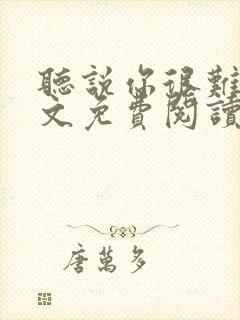 聽說你很難
文免費閱讀
唐萬多